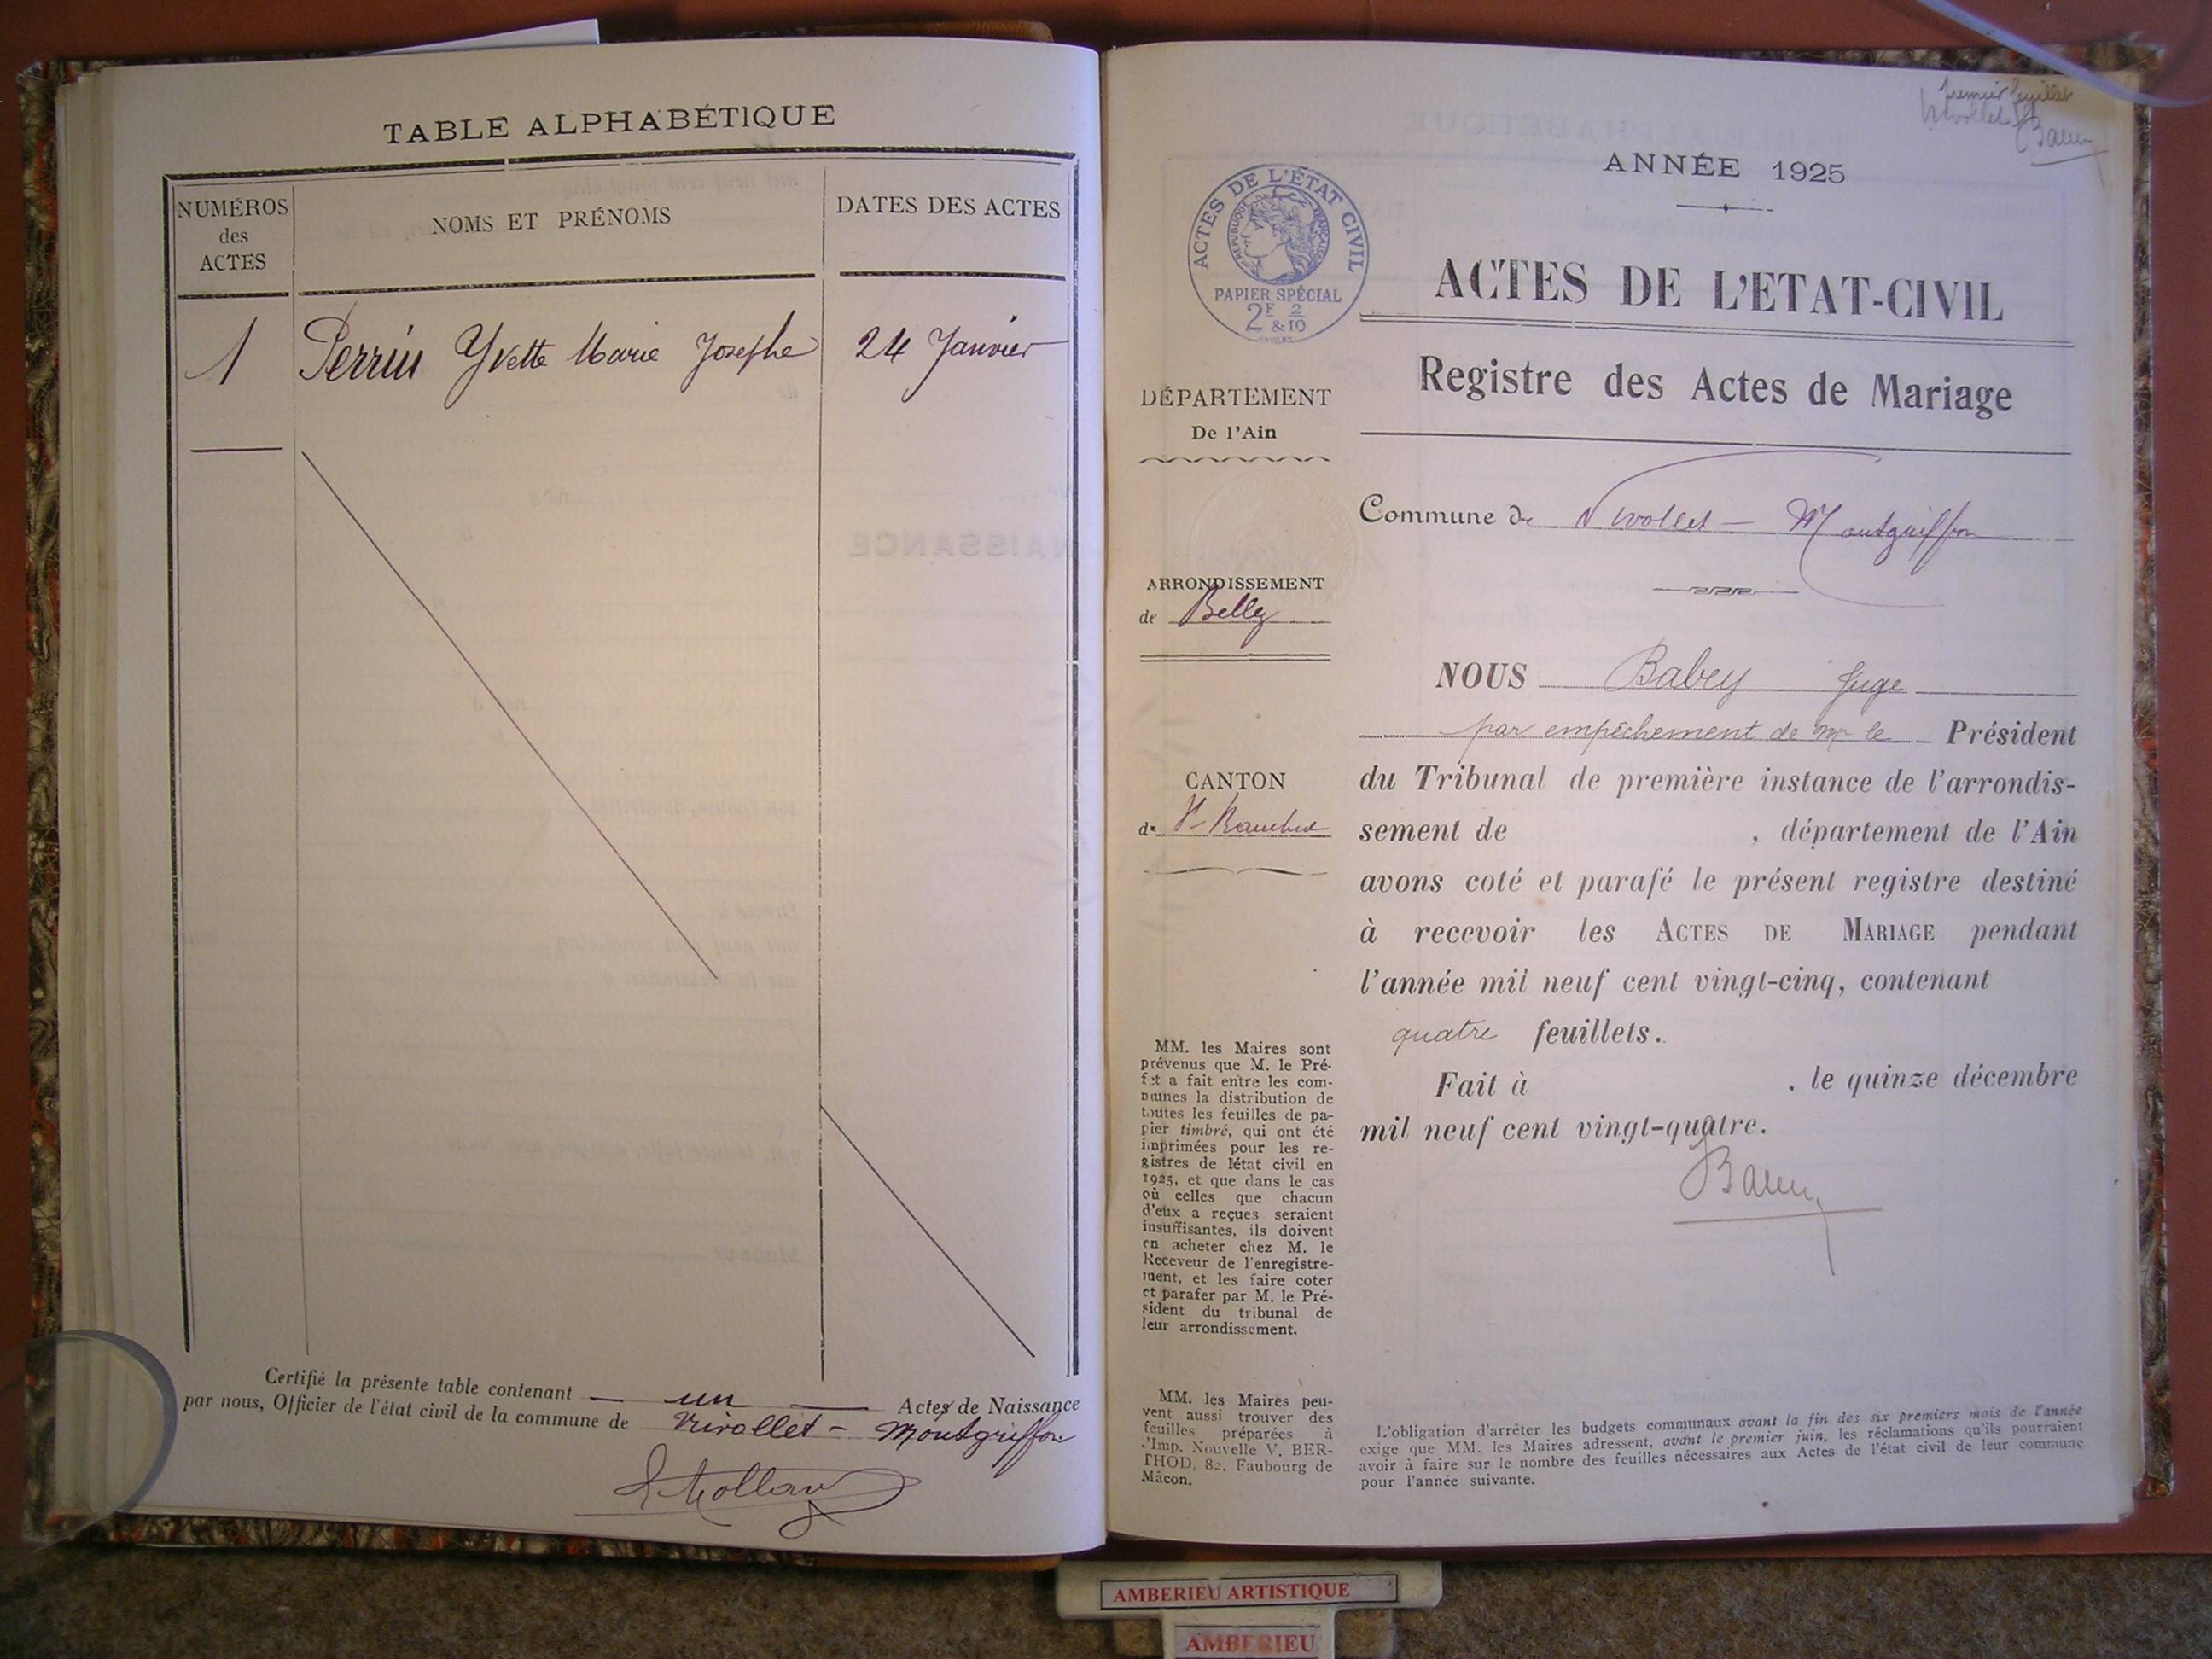 TABLE ALPHABÉTIQUE
NUMÉROS
des
ACTES
NOMS ET PRÉNOMS
DATES DES ACTES
1 Perrin Yvette Marie Josephe 24 Janvier
Certifié la présente table contenant un Actes de Naissance
par nous, Officier de l'état civil de la commune de Nivollet - Montgriffon
premier feuillet
Nivollet
ANNÉE 1925
ACTES DE L'ÉTAT CIVIL
RÉPUBLIQUE FRANÇAISE
PAPIER SPÉCIAL
2F 2
&10
ACTES DE L'ETAT-CIVIL
Registre des Actes de Mariage
DÉPARTEMENT
De l'Ain
Commune de Nivollet - Montgriffon
ARRONDISSEMENT
de Belley
NOUS Babey Juge
par empêchement de Mr le Président
CANTON
de St Rambert
du Tribunal de première instance de l'arrondis-
sement de , département de l'Ain
avons coté et parafé le présent registre destiné
à recevoir les ACTES DE MARIAGE pendant
l'année mil neuf cent vingt-cinq, contenant
quatre feuillets.
Fait à , le quinze décembre
mil neuf cent vingt-quatre.
MM. les Maires sont
prévenus que M. le Pré-
fet a fait entre les com-
munes la distribution de
toutes les feuilles de pa-
pier timbré, qui ont été
imprimées pour les re-
gistres de l'état civil en
1925, et que dans le cas
où celles que chacun
d'eux a reçues seraient
insuffisantes, ils doivent
en acheter chez M. le
Receveur de l'enregistre-
ment, et les faire coter
et parafer par M. le Pré-
sident du tribunal de
leur arrondissement.
MM. les Maires peu-
vent aussi trouver des
feuilles préparées à
l'Imp. Nouvelle V. BER-
THOD, 82, Faubourg de
Mâcon.
L'obligation d'arrêter les budgets communaux avant la fin des six premiers mois de l'année
exige que MM. les Maires adressent, avant le premier juin, les réclamations qu'ils pourraient
avoir à faire sur le nombre des feuilles nécessaires aux Actes de l'état civil de leur commune
pour l'année suivante.
AMBERIEU ARTISTIQUE
AMBERIEU